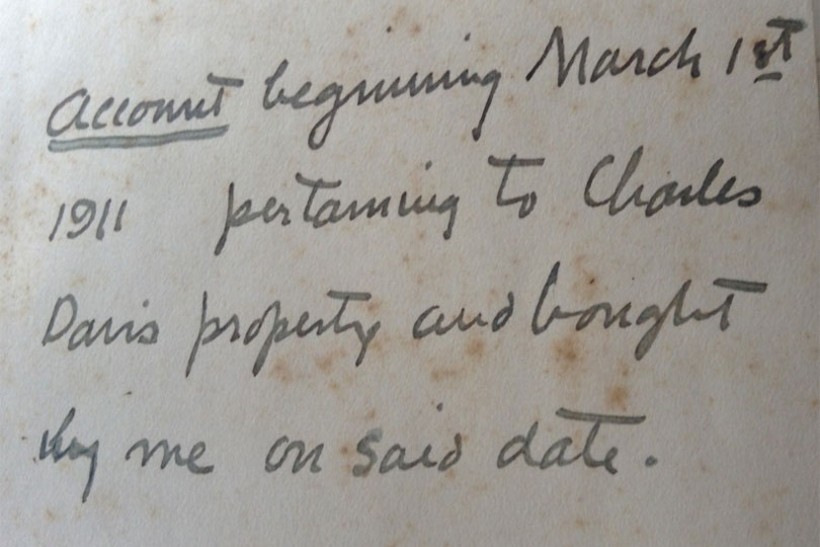 Account beginning March 1st
1911 pertaining to Charles
Davis property and bought
by me on said date.